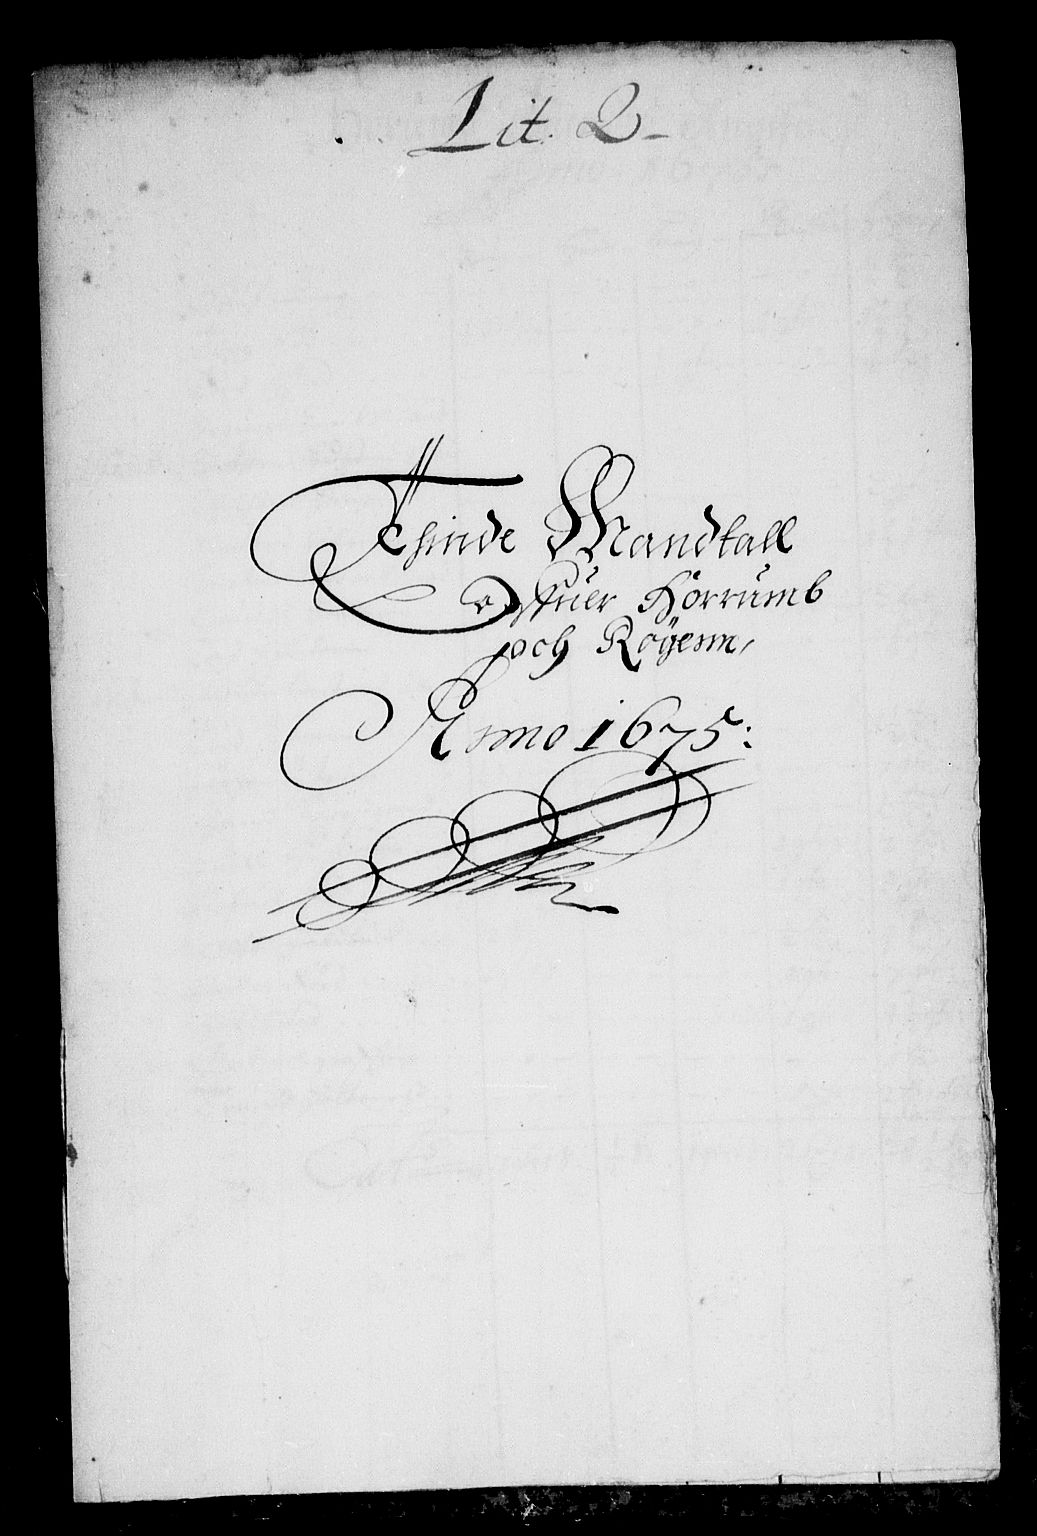 Lit. Q
Thinde Mandtall
offuer Hörrumb
och Røgenn,
Anno 1675: